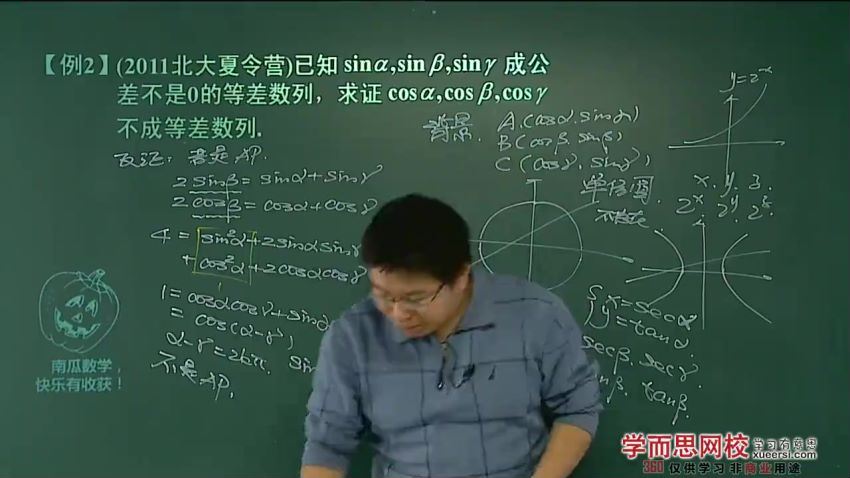 【例2】(2011北大夏令营)已知 sinα,sinβ,sinγ 成公
差不是0的等差数列，求证 cosα,cosβ,cosγ
不成等差数列.
反证：若是 AP.
2 sinβ = sinα + sinγ
2 cosβ = cosα + cosγ
4 = sin²α + 2sinαsinγ
+ cos²α + 2cosαcosγ
1 = cosαcosγ + sinα
= cos(α-γ)
α-γ = 2kπ. sin
不是 AP.
背景. A(cosα.sinα)
B(cosβ.sinβ)
C(cosγ.sinγ)
单位圆
不存在
y=2⁻ˣ
x. y. z.
2ˣ. 2ʸ. 2ᶻ
{ x = secα
y = tanα.
secβ. secγ.
tanβ.
南瓜数学，
快乐有收获！
学而思网校
学习有意思
xueersi.com
360 仅供学习 非商业用途